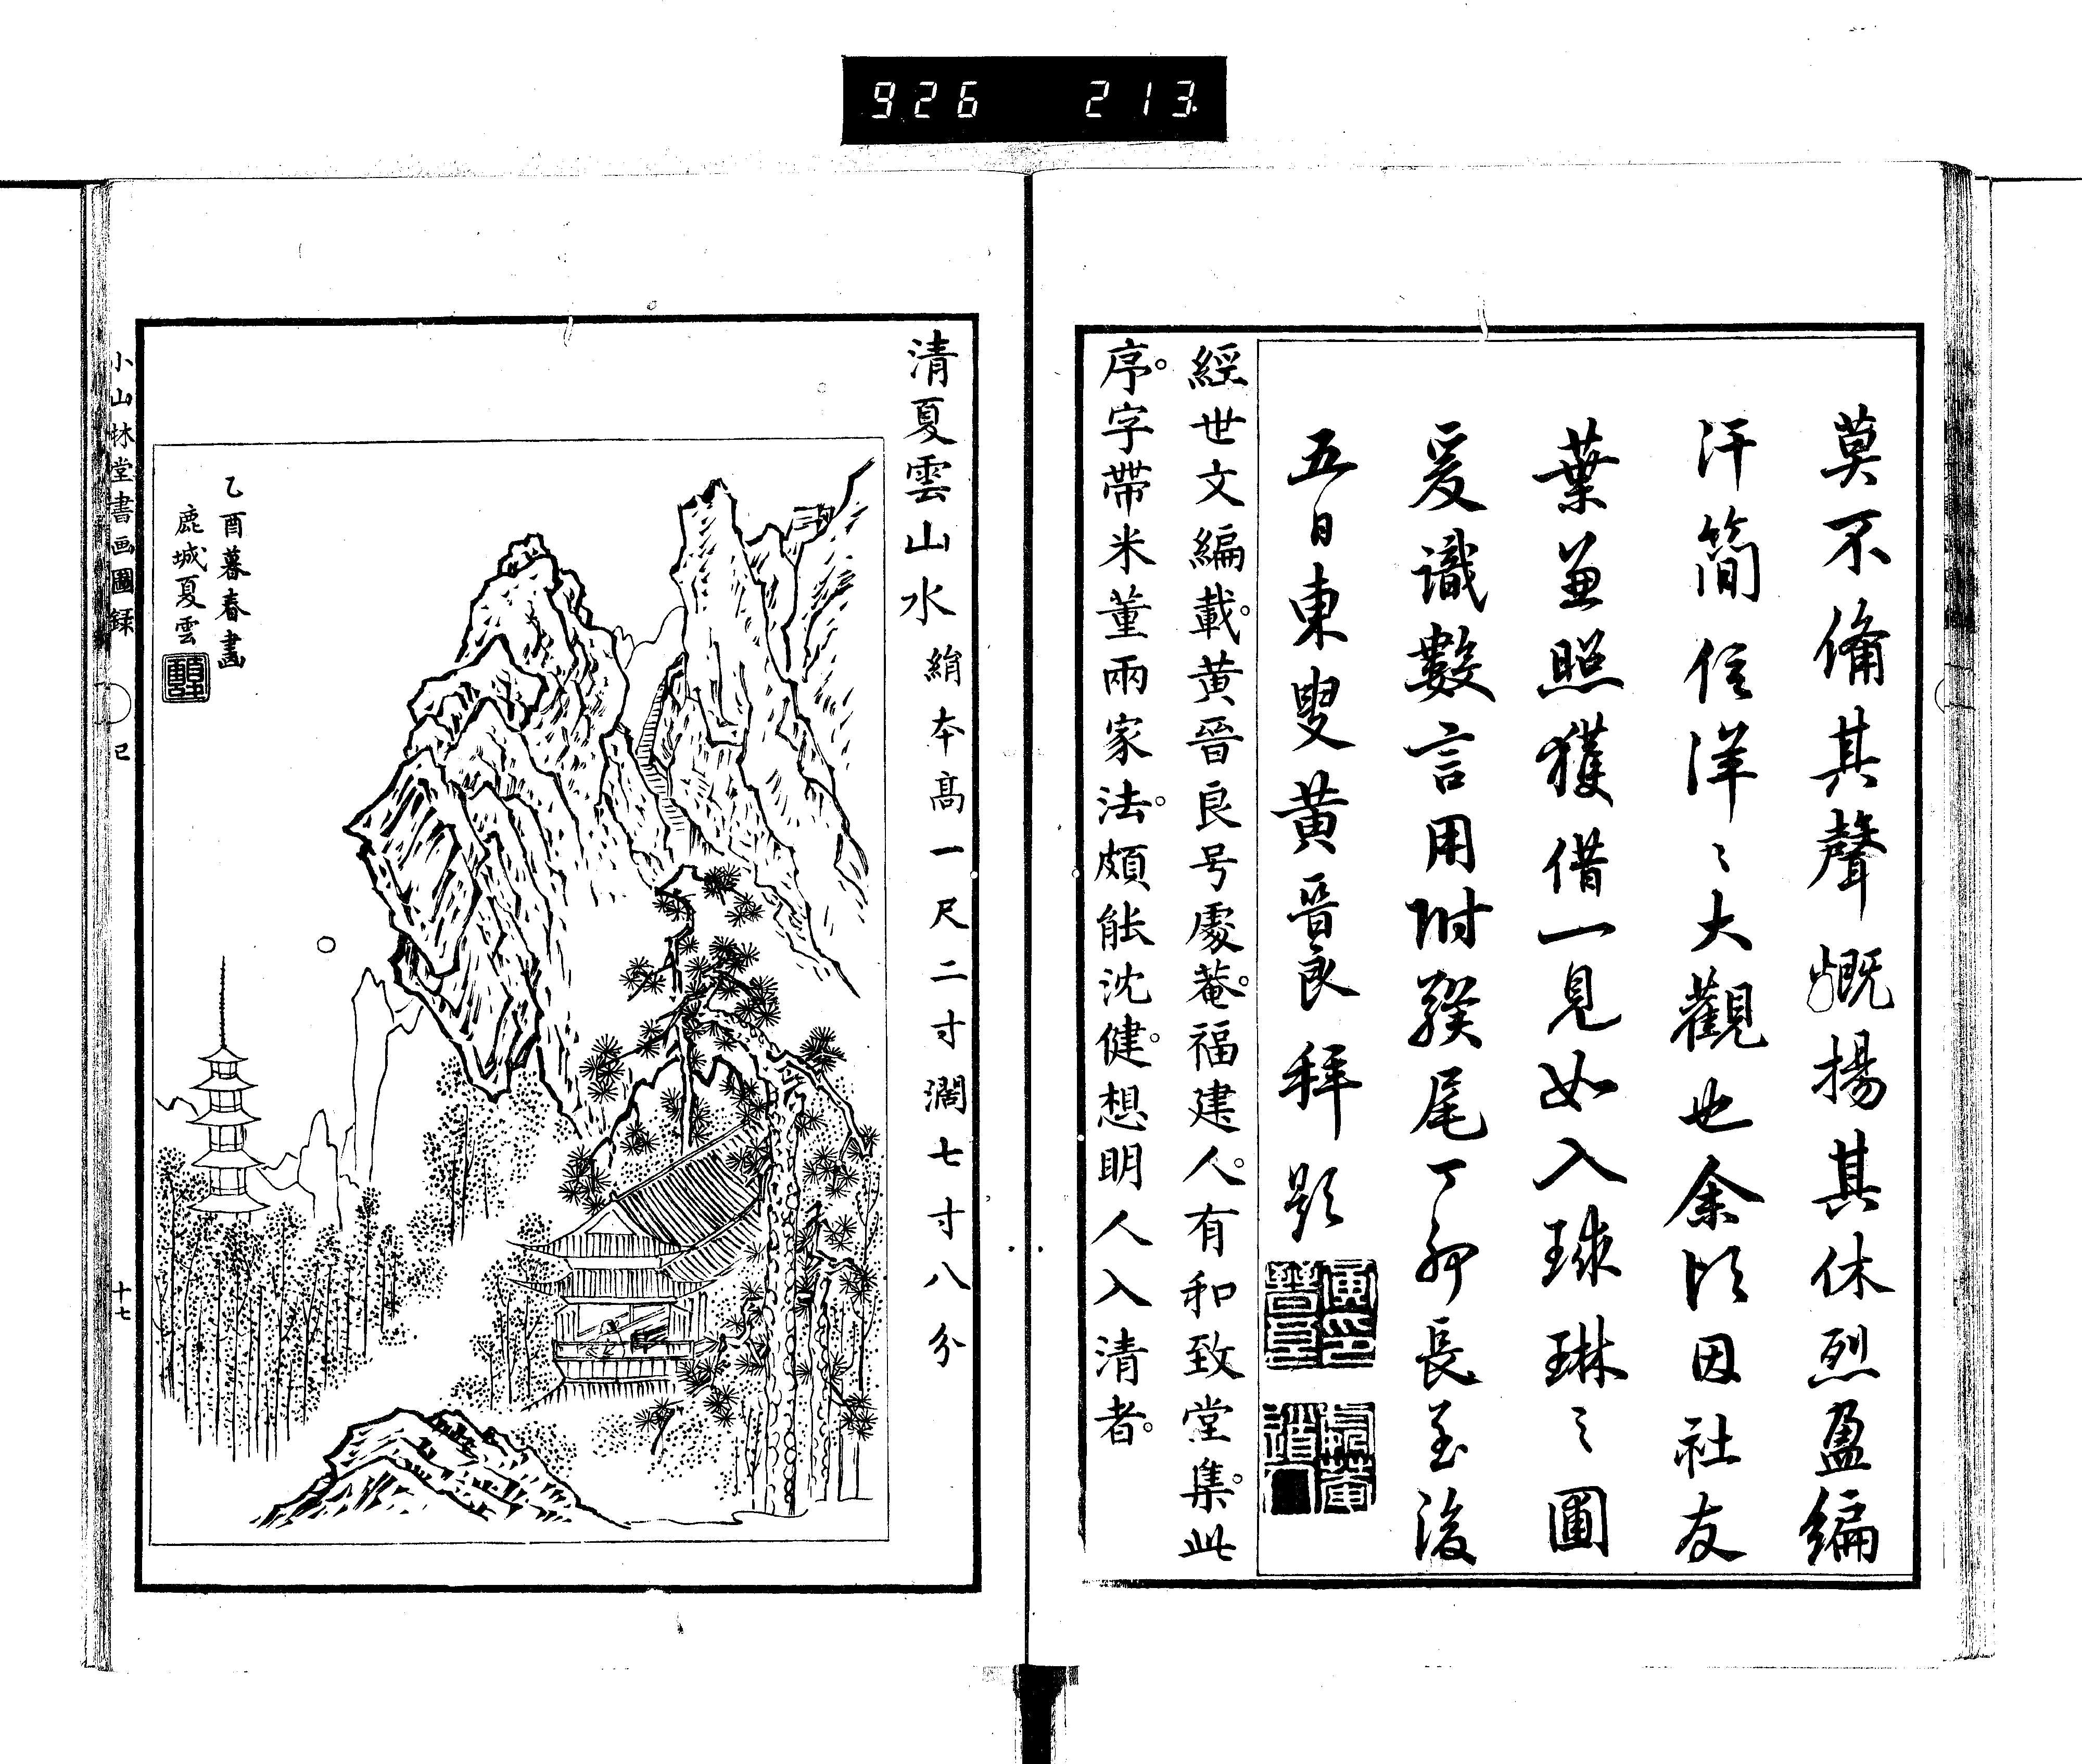 926 213
莫不脩其聲慨揚其休烈盈編
汗簡信洋〻大觀也余以因社友
葉並照獲借一見如入球琳之圃
爰識數言用附驥尾丁卯長至後
五日東叟黃晉良拜題
經世文編載。黃晉良号處菴。福建人。有和致堂集。此
序。字帶米董兩家法。頗能沈健。想明人入清者。
清夏雲山水 絹本高一尺二寸濶七寸八分
乙酉暮春畫
鹿城夏雲
小山林堂書画圖録 巳 十七